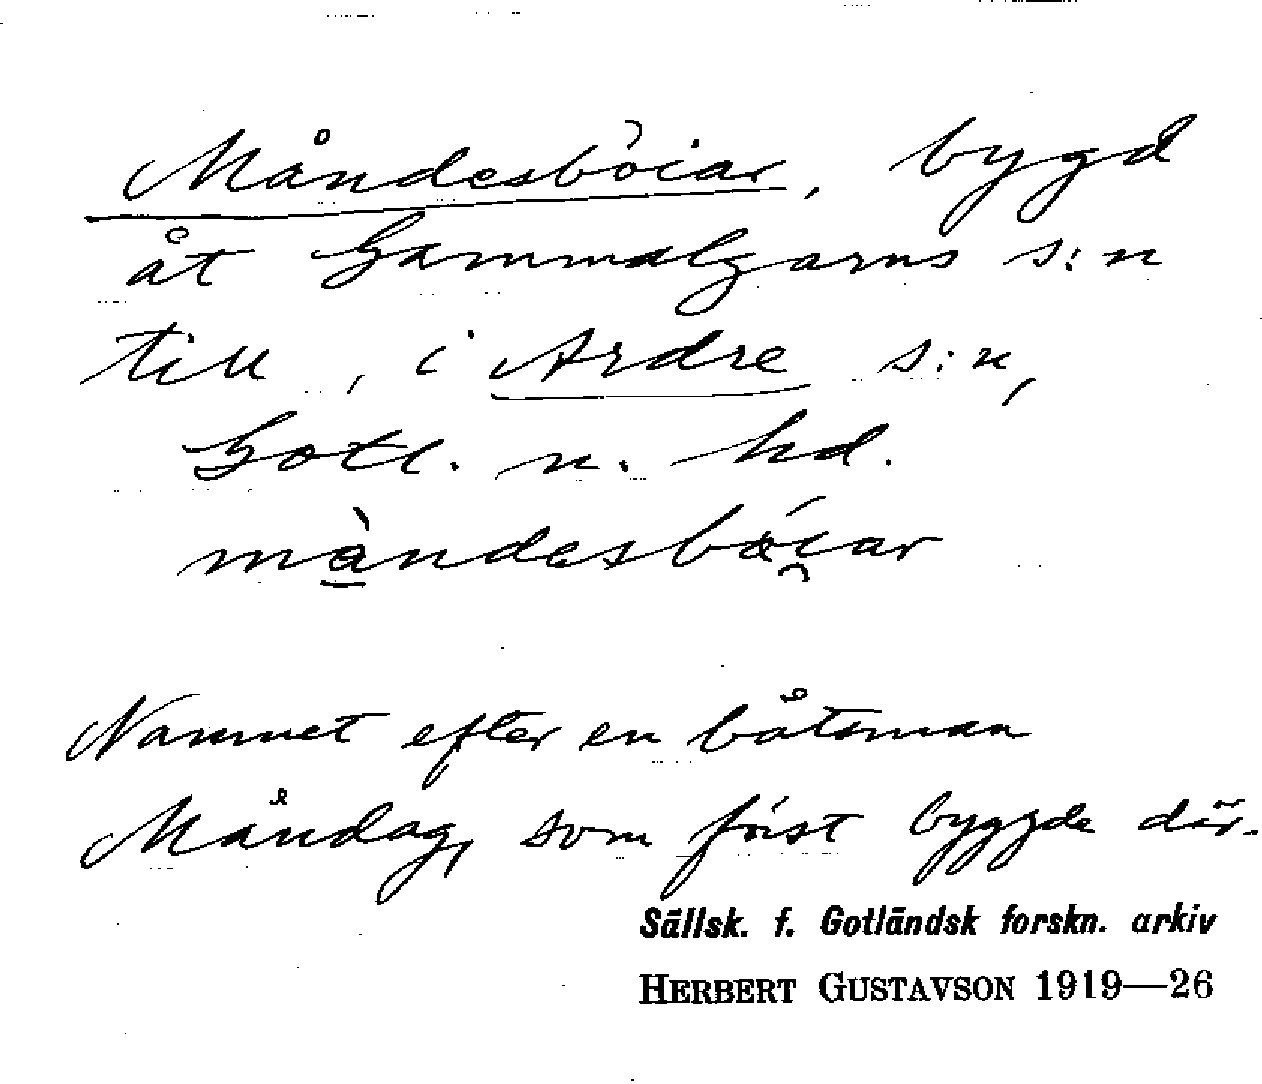 Måndesböiar, bygd
åt Gammalgarns s:n
till, i Ardre s:n,
Gotl. n. hd.
måndesbȯiar
Namnet efter en båtsman
Måndag, som först byggde där.
Sällsk. f. Gotländsk forskn. arkiv
HERBERT GUSTAVSON 1919—26